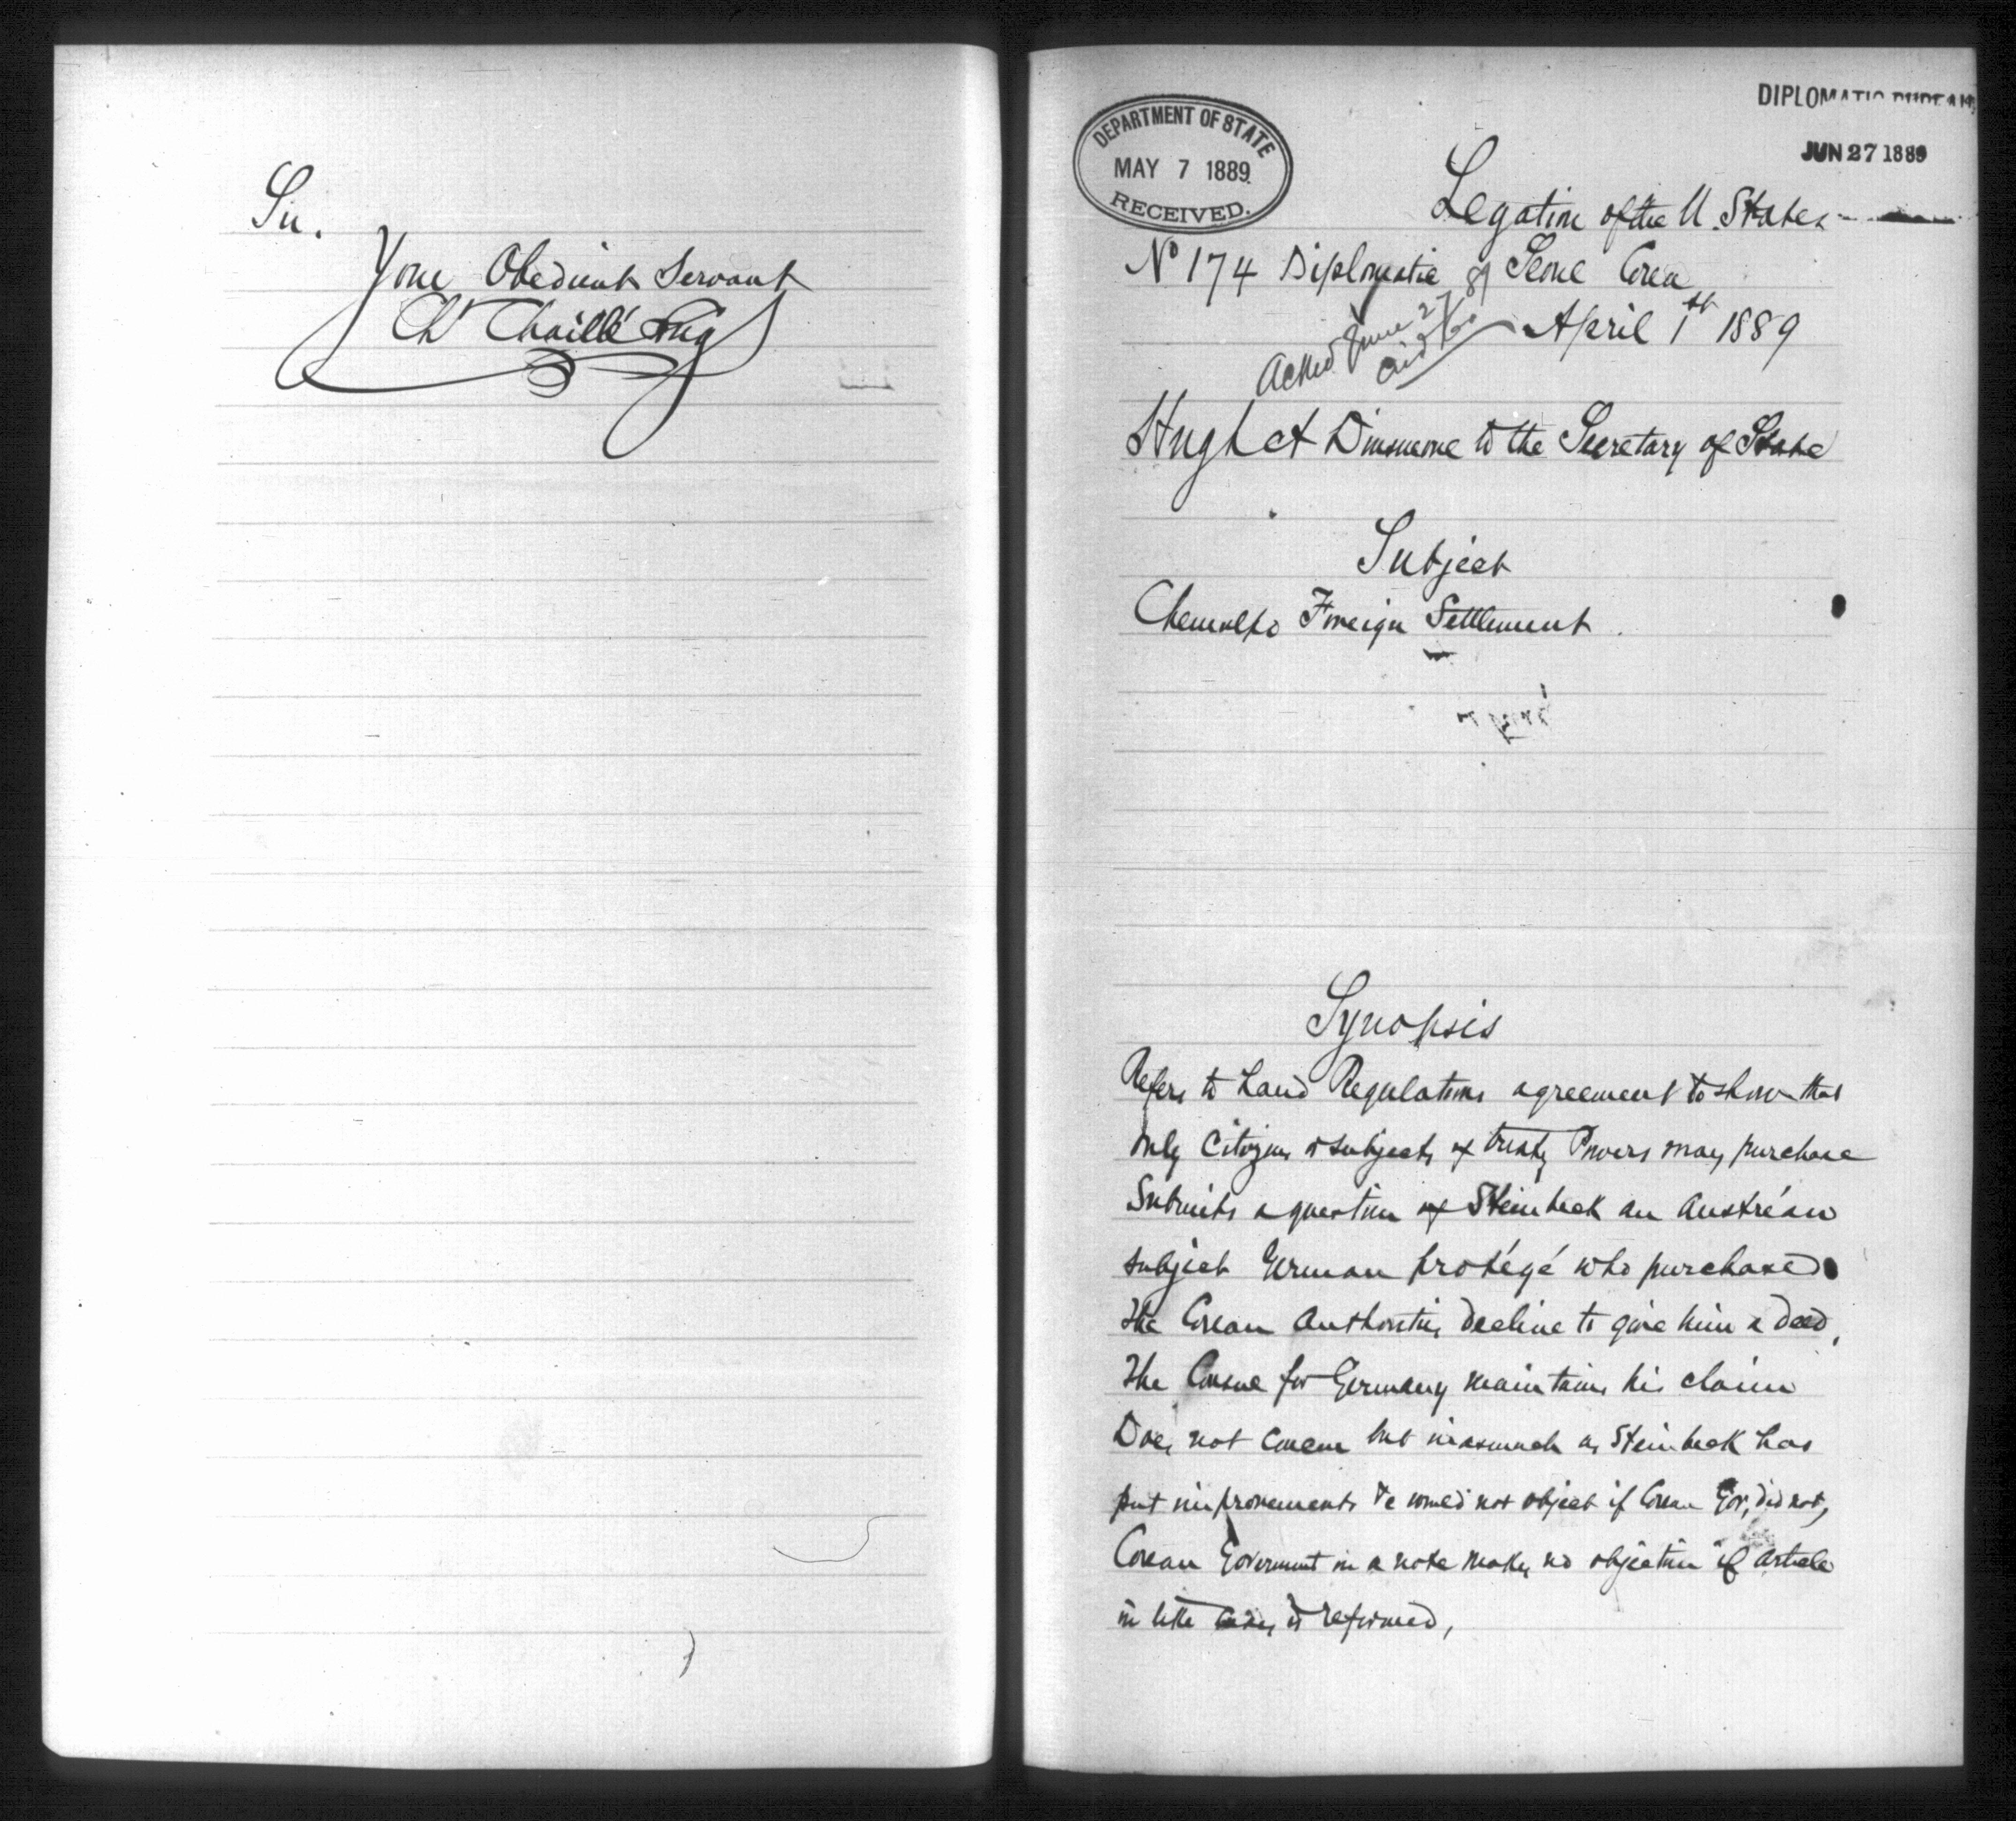 Sir.
Your Obedient Servant
Ch Chaillé Long
DEPARTMENT OF STATE
MAY 7 1889
RECEIVED.
DIPLOMATIC BUREAU
JUN 27 1889
Legation of the U. States
No 174 Diplomatic Seoul Corea
April 1st 1889
Ackd June 27/89
Hugh A Dinsmore to the Secretary of State
Subject
Chemulpo Foreign Settlement.
Synopsis
Refers to Land Regulations agreement to show that
only Citizens or subjects of treaty Powers may purchase
Submits a question of Steinbeck an Austrian
subject German protégé who purchased
The Corean Authorities decline to give him a deed,
The Consul for Germany maintains his claim
Does not concur but inasmuch as Steinbeck has
put improvements &c would not object if Corean Gov, did not,
Corean Goverment in a note makes no objection if article
in like cases is reformed,